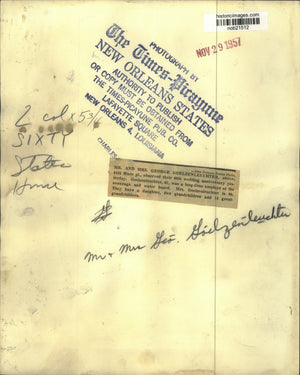 historicimages.com
nob21512
NOV 29 1957
PHOTOGRAPH BY
The Times-Picayune
NEW ORLEANS STATES
AUTHORITY TO PUBLISH
OR COPY MUST BE OBTAINED FROM
THE TIMES-PICAYUNE PUB. CO.
LAFAYETTE SQUARE
NEW ORLEANS 4, LOUISIANA
CHARLES
2 col x 5 3/4
SIXTY
States
House
MR. AND MRS. GEORGE GOELZENLEUCHTER,
observed their 60th wedding anniversary yes-
terday. Goelzenleuchter, was a long-time employe of the
sewerage and water board. Mrs. Goelzenleuchter is
They have a daughter, five grandchildren and 11 great-
grandchildren.
Mr + Mrs Geo. Goelzenleuchter